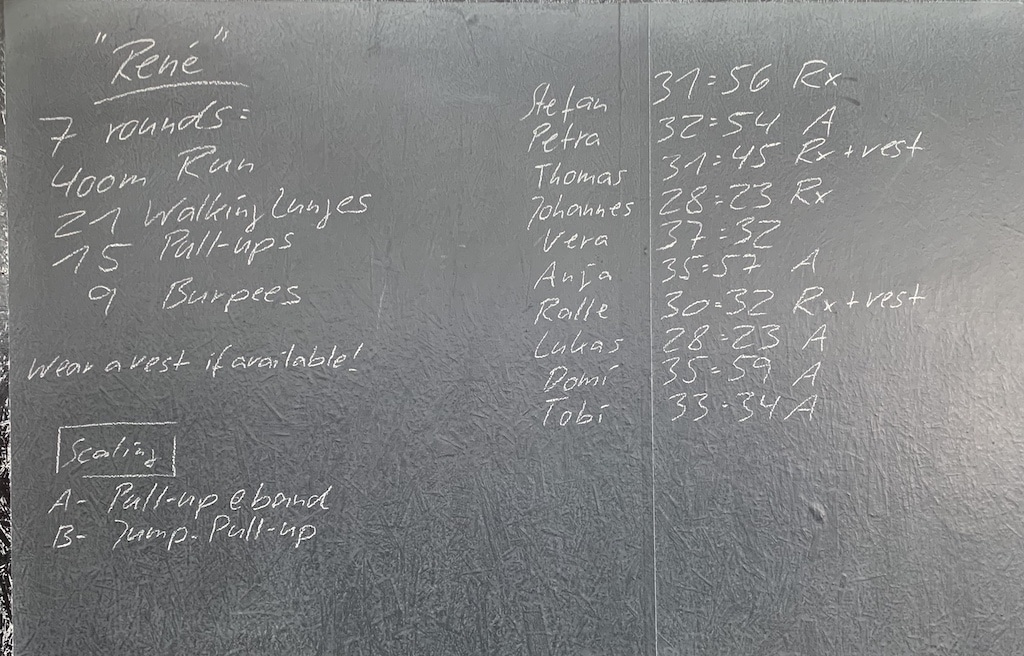 "René"
7 rounds:
400m Run
21 Walking Lunges
15 Pull-ups
9 Burpees
Wear a vest if available!
Scaling
A- Pull-up @ band
B- Jump. Pull-up
Stefan 31:56 Rx
Petra 32:54 A
Thomas 31:45 Rx + vest
Johannes 28:23 Rx
Vera 37:32
Anja 35:57 A
Ralle 30:32 Rx + vest
Lukas 28:23 A
Domi 35:59 A
Tobi 33:34 A